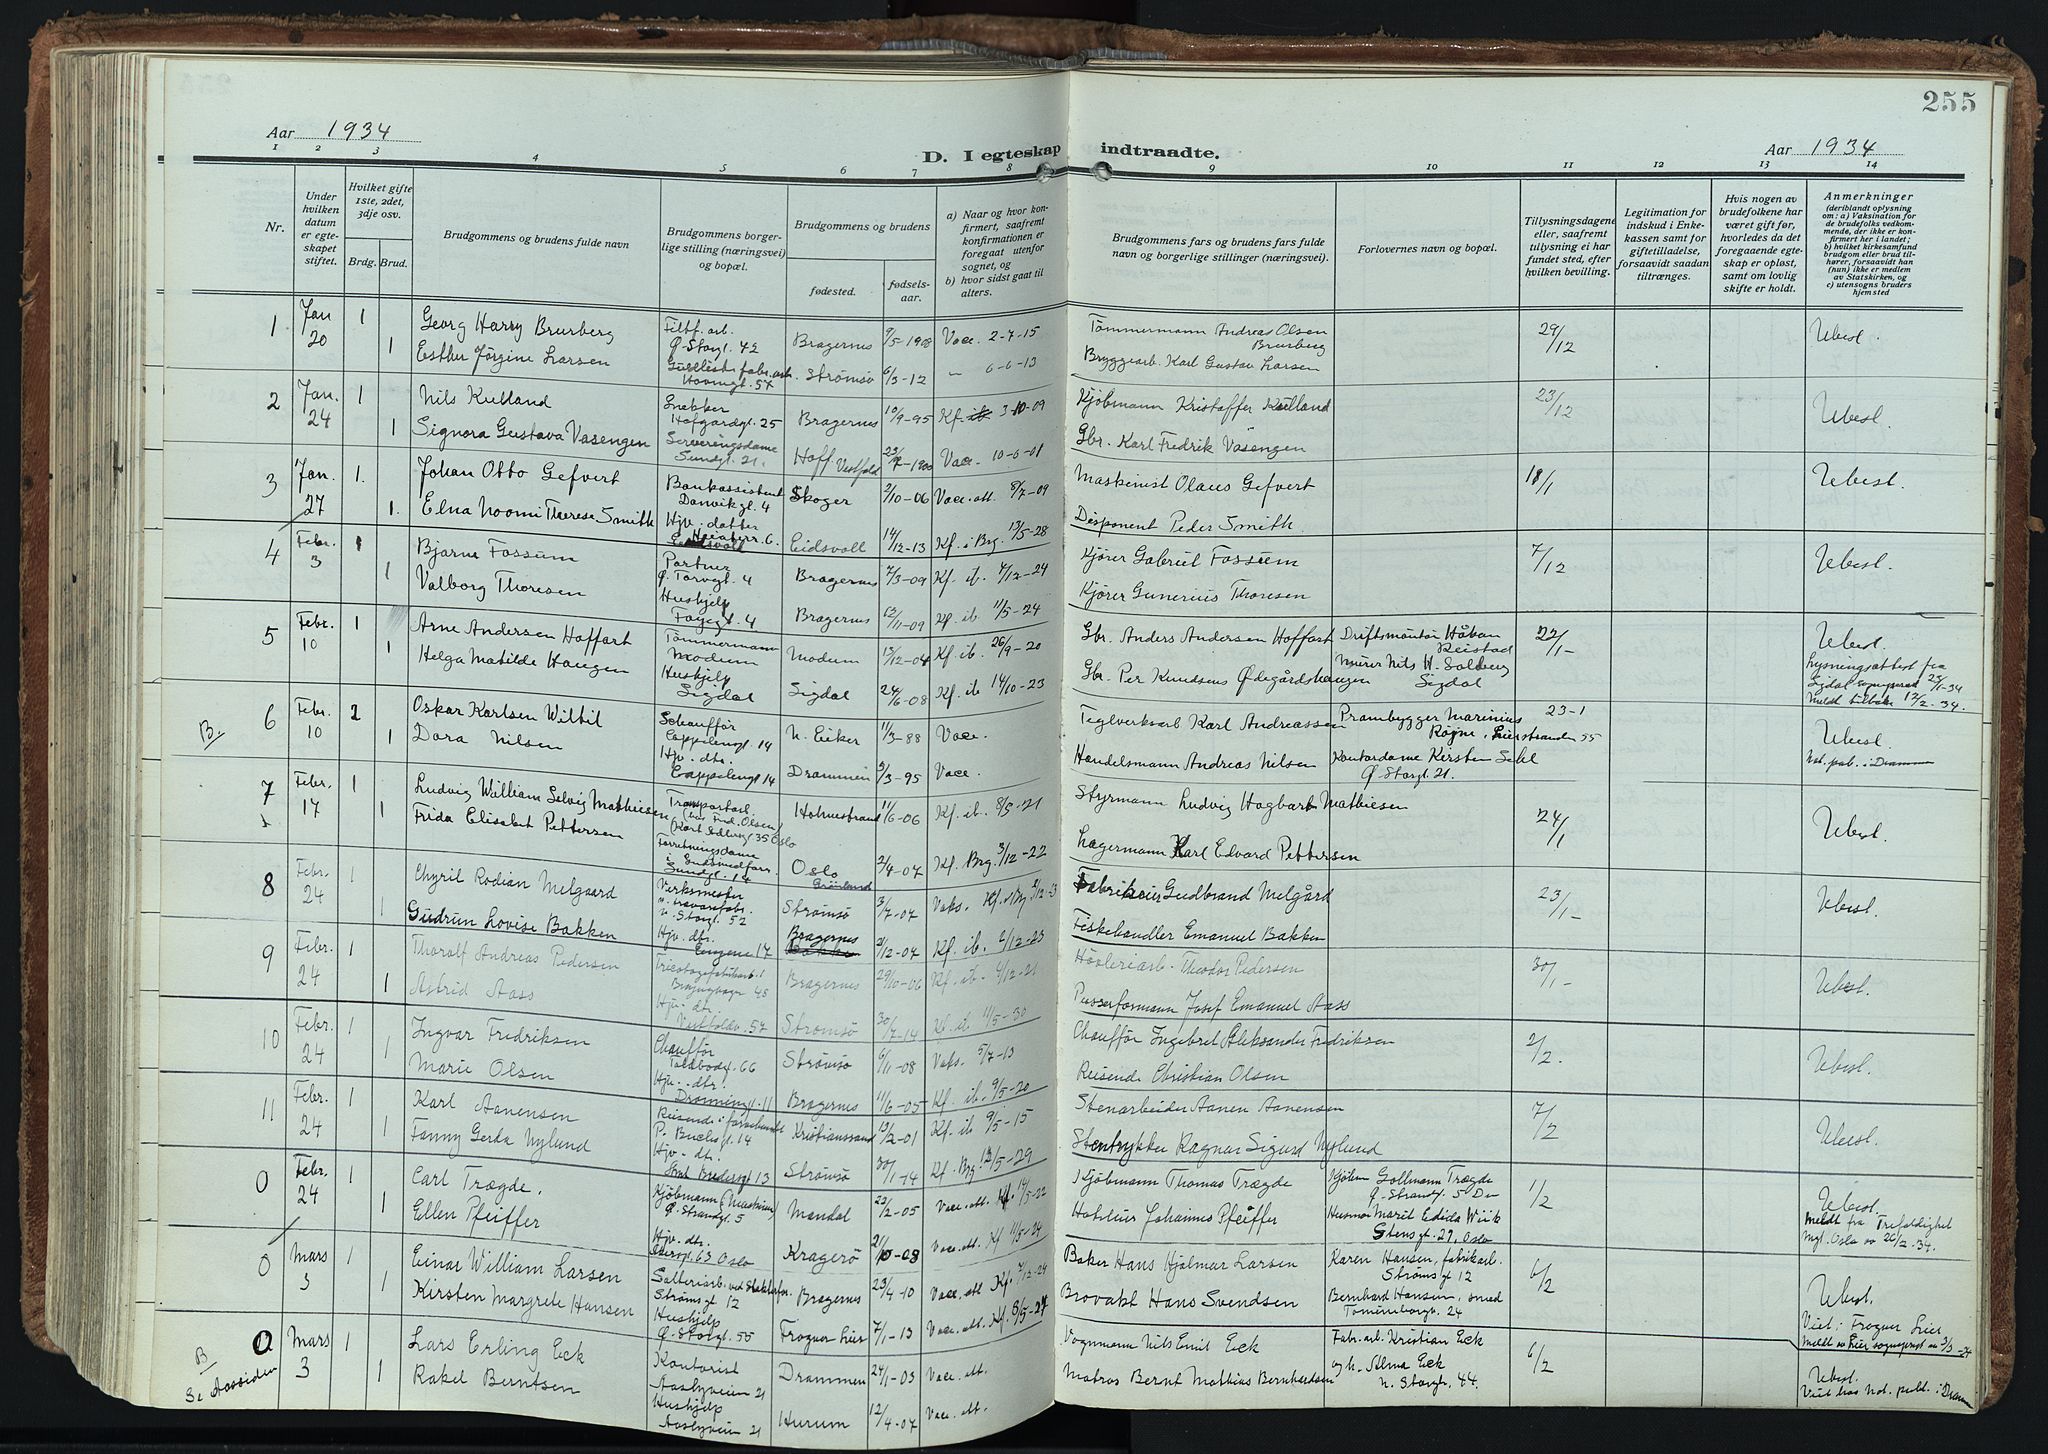 255
Aar 1934
D. I egteskap indtraadte.
Aar 1934
1 2 3 4 5 6 7 8 9 10 11 12 13 14
Nr.
Under hvilken datum er egte-skapet stiftet.
Hvilket gifte 1ste, 2det, 3dje osv.
Brdg. Brud.
Brudgommens og brudens fulde navn
Brudgommens borger-lige stilling (næringsvei) og bopæl.
Brudgommens og brudens
fødested.
fødsels-aar.
a) Naar og hvor kon-firmert, saafremt konfirmationen er foregaat utenfor sognet, og
b) hvor sidst gaat til alters.
Brudgommens fars og brudens fars fulde navn og borgerlige stillinger (næringsvei).
Forlovernes navn og bopæl.
Tillysningsdagene eller, saafremt tillysning ei har fundet sted, efter hvilken bevilling.
Legitimation for indskud i Enke-kassen samt for giftetilladelse, forsaavidt saadan tiltrænges.
Hvis nogen av brudefolkene har været gift før, hvorledes da det foregaaende egte-skap er opløst, samt om lovlig skifte er holdt.
Anmerkninger
(deriblandt oplysning om: a) Vaksination for de brudefolks vedkom-mende, der ikke er kon-firmert her i landet;
b) hvilket kirkesamfund brudgom eller brud til-hører, forsaavidt han (hun) ikke er medlem av Statskirken, og
c) utensogns bruders hjemsted
1 Jan 20 1 Georg Harry Brurberg Filtf. arb. Ø. Storgt. 42 Bragernes 9/5-1908 Vacc. 2-7-15 Tømmermann Andreas Olsen Brurberg 29/12 Ubesl.
1 Esther Jørgine Larsen Havngt. 57 Strømsø 6/3-12 6-6-13 Bryggearb. Karl Gustav Larsen
2 Jan. 24 1 Nils Kulland Snekker Hofgårdgt. 25 Bragernes 10/9-95 Kf. 3-10-09 Kjøbmann Kristoffer Kulland 23/12 Ubesl.
1 Signora Gustava Vasengen Serveringsdame Sundgt. 21. Hoff Vestfold 1900 Vacc. 10-6-01 Gbr. Karl Fredrik Vasengen
3 Jan. 27 1. Johan Otto Gefvert Bankassistent Danvikgt. 4 Skoger 2/10-06 Vacc. att. 8/7-09 Maskinist Olaus Gefvert 18/1 Ubesl.
1. Elna Noomi Therese Smith Hjv. datter Eidsvoll 14/12-13 Kf. i Brg. 13/5-28 Disponent Peder Smith
4 Febr. 3 1 Bjarne Fossum Portner Ø. Torvgt. 4 Bragernes 7/3-09 Kf. ib. 7/12-24 Kjører Gabriel Fossum 7/12 Ubesl.
1 Valborg Thoresen Hushjelp Bragernes 13/11-09 Kf. ib. 11/5-24 Kjører Gunerius Thoresen
5 Febr. 10 1 Arne Andersen Hoffart Tømmermann Modum Modum 13/12-04 Kf. ib. 26/9-20 Gbr. Anders Andersen Hoffart Driftsmontør Håkon Reistad 22/1- Ubesl.
1 Helga Matilde Haugen Hushjelp Sigdal Sigdal 24/6-08 Kf. ib 14/10-23 Gbr. Per Knudsens Ødegårdshaugen Murer Nils H. Solberg Sigdal Lysningsattest fra Sigdal 25/1-34 Meldt tilbake 12/2-34.
B. 6 Febr. 10 2 Oskar Karlsen Wiltil Schauffør Cappelengt. 14 N. Eiker 11/3-88 Vacc. Teglverksarb Karl Andreassen Prambygger Marinius Røgne, Lierstranden 55 23-1 Ubesl.
1 Dora Nilsen Hjv. dtr. Cappelengt 14 Drammen 3/3-95 Vacc. Handelsmann Andreas Nilsen Kontordame Kirsten Ø. Storgt. 21. Not. pub. i Drammen
7 Febr. 17 1 Ludvig William Selvig Mathiesen Transportarb. (hos Fred. Olsen) 35 Oslo Holmestrand 11/6-06 Kf. ib. 8/5-21 Styrmann Ludvig Hagbart Mathiesen 24/1 Ubesl.
1 Frida Elisabet Pettersen Forretningsdame Sundgt. 14 Oslo Grønland 2/4-07 Kf. Brg. 3/12-22 Lagermann Karl Edvard Pettersen
8 Febr. 24 1 Chyril Rodian Melgaard Verksmester Storgt. 52 Strømsø 3/7-07 Vaks. Kf. Fabrikeier Gudbrand Melgård 23/1- Ubesl.
1 Gudrun Lovise Bakken Hjv. dtr. Engene 17 Bragernes 2/12-07 Kf. ib. 2/12-23 Fiskehandler Emanuel Bakken
9 Febr. 24 1 Thoralf Andreas Pedersen Tricotagefabrikarb. Bragernes 29/10-06 Kf. ib. 4/12-21 Høvleriarb. Theodor Pedersen 30/1- Ubesl.
1 Astrid Aass Hjv. dtr. Vestfoldv. 57 Strømsø 30/7-14 Kf. ib 11/5-30 Pusserformann Josef Emanuel Aass
10 Febr. 24 1 Ingvar Fredriksen Chauffør Toldbodgt. 66 Strømsø 6/11-08 Vaks. 5/7-13 Chauffør Ingebret Aleksander Fredriksen 2/2. Ubesl.
1 Marie Olsen Hjv. dtr. Dronningt. 11 Bragernes 11/6-05 Kf. ib. 9/5-20 Reisende Christian Olsen
11 Febr. 24 1 Karl Aanensen Reisende i P. Buchsgt. 14 Kristianssand 13/2-01 Kf. ib 9/5-15 Stenarbeider Aanen Aanensen 7/2 Ubesl.
1 Fanny Gerda Nylund Hjv. dtr. Strømsø 30/1-14 Kf Brg. 12/5-29 Stentrykker Ragnar Sigurd Nylund
0 Febr. 24 1 Carl Trægde. Kjøbmann Ø. Strandgt. 5 Mandal 22/2-05 Vacc. att. Kf. 14/5-22 Kjøbmann Thomas Trægde Gollmann Trægde Ø. Strandgt. 5 Dn 1/2 Ubesl.
1 Ellen Pfeiffer Hjv. dtr. 63 Oslo Kragerö 21/10-08 Vacc. att. Kf 11/5-24 Hoteleier Johannes Pfeiffer Husmor Marit Edida Wiik Stensgt. 29, Oslo Meldt fra Trefoldighet mgt. Oslo 26/2-34.
0 Mars 3 1 Einar William Larsen Strømsgt 12 Bragernes 23/4-10 Vacc. att Kf. 7/12-24 Baker Hans Hjalmar Larsen Karen Hansen, fabrikarb. Strømsgt 12 6/2 Ubesl.
1 Kirsten Margrete Hansen Hushjelp Ø. Storgt. 55 Frogner Lier 7/1-13 Vacc. att. Kf. 8/5-27 Brovakt Hans Svendsen Bernhard Hansen, smed Tømmerborgt. 24 Viet i Frogner Lier
B 0 Mars 3 1 Lars Erling Eck Kontorist Aaslyveien 21 Drammen 24/1-03 Vacc. att. Vognmann Nils Emil Eck Fabr. arb. Kristian Eck 6/2 Ubesl.
1 Rakel Berntsen Hushjelp Aaslyveien 21 Hurum 12/4-07 Vacc. att. Matros Bernt Mathias Bernhardsen og h. Alma Eck N. Storgt. 44.